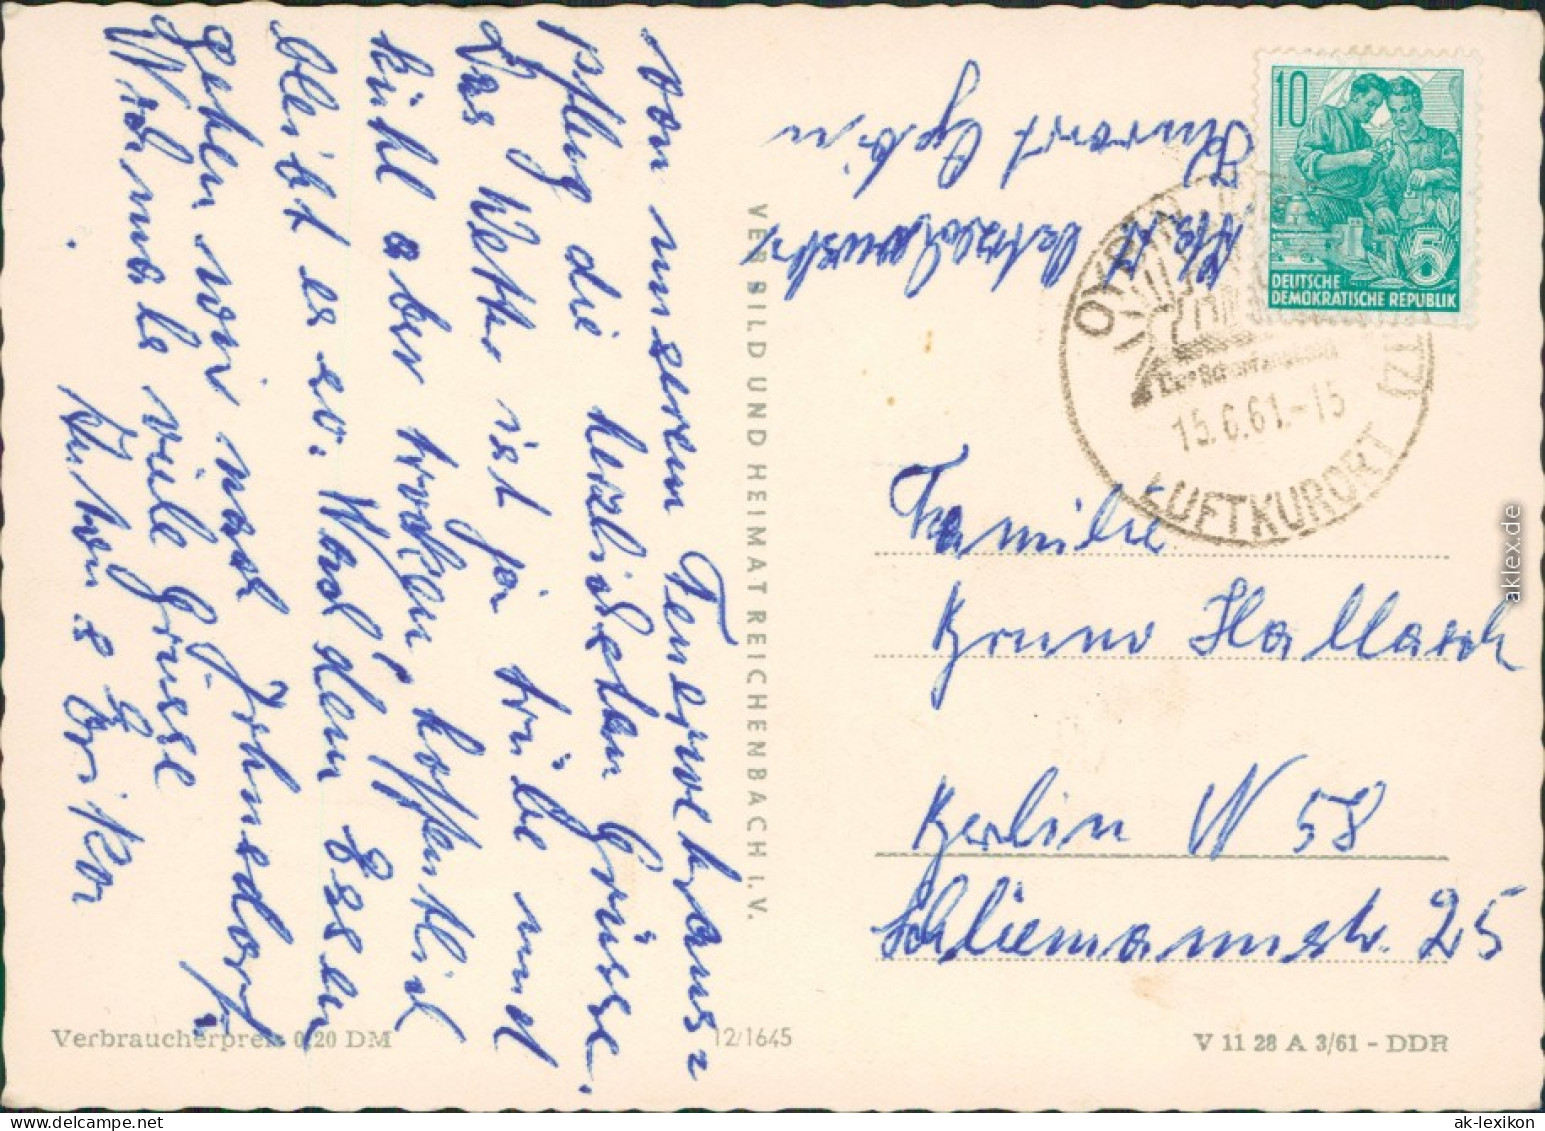 Von unserem Feuerwehraus=
pflug die herzlichsten Grüsse.
Das Wetter ist ja trübe und
kühl aber trocken, hoffentlich
bleibt es so. Nach dem Essen
gehen wir nach Johnsdorf.
Nochmals viele Grüsse
Anton & Erika
VERB BILD UND HEIMAT REICHENBACH I.V.
Kurort Oybin
10
DEUTSCHE
DEMOKRATISCHE REPUBLIK
5
OYBIN
15.6.61.-15
LUFTKURORT
Familie
Bruno Hallasch
Berlin N 58
Schliemannstr. 25
Verbraucherpreis 0,20 DM
12/1645
V 11 28 A 3/61 - DDR
aklex.de
ak-lexikon